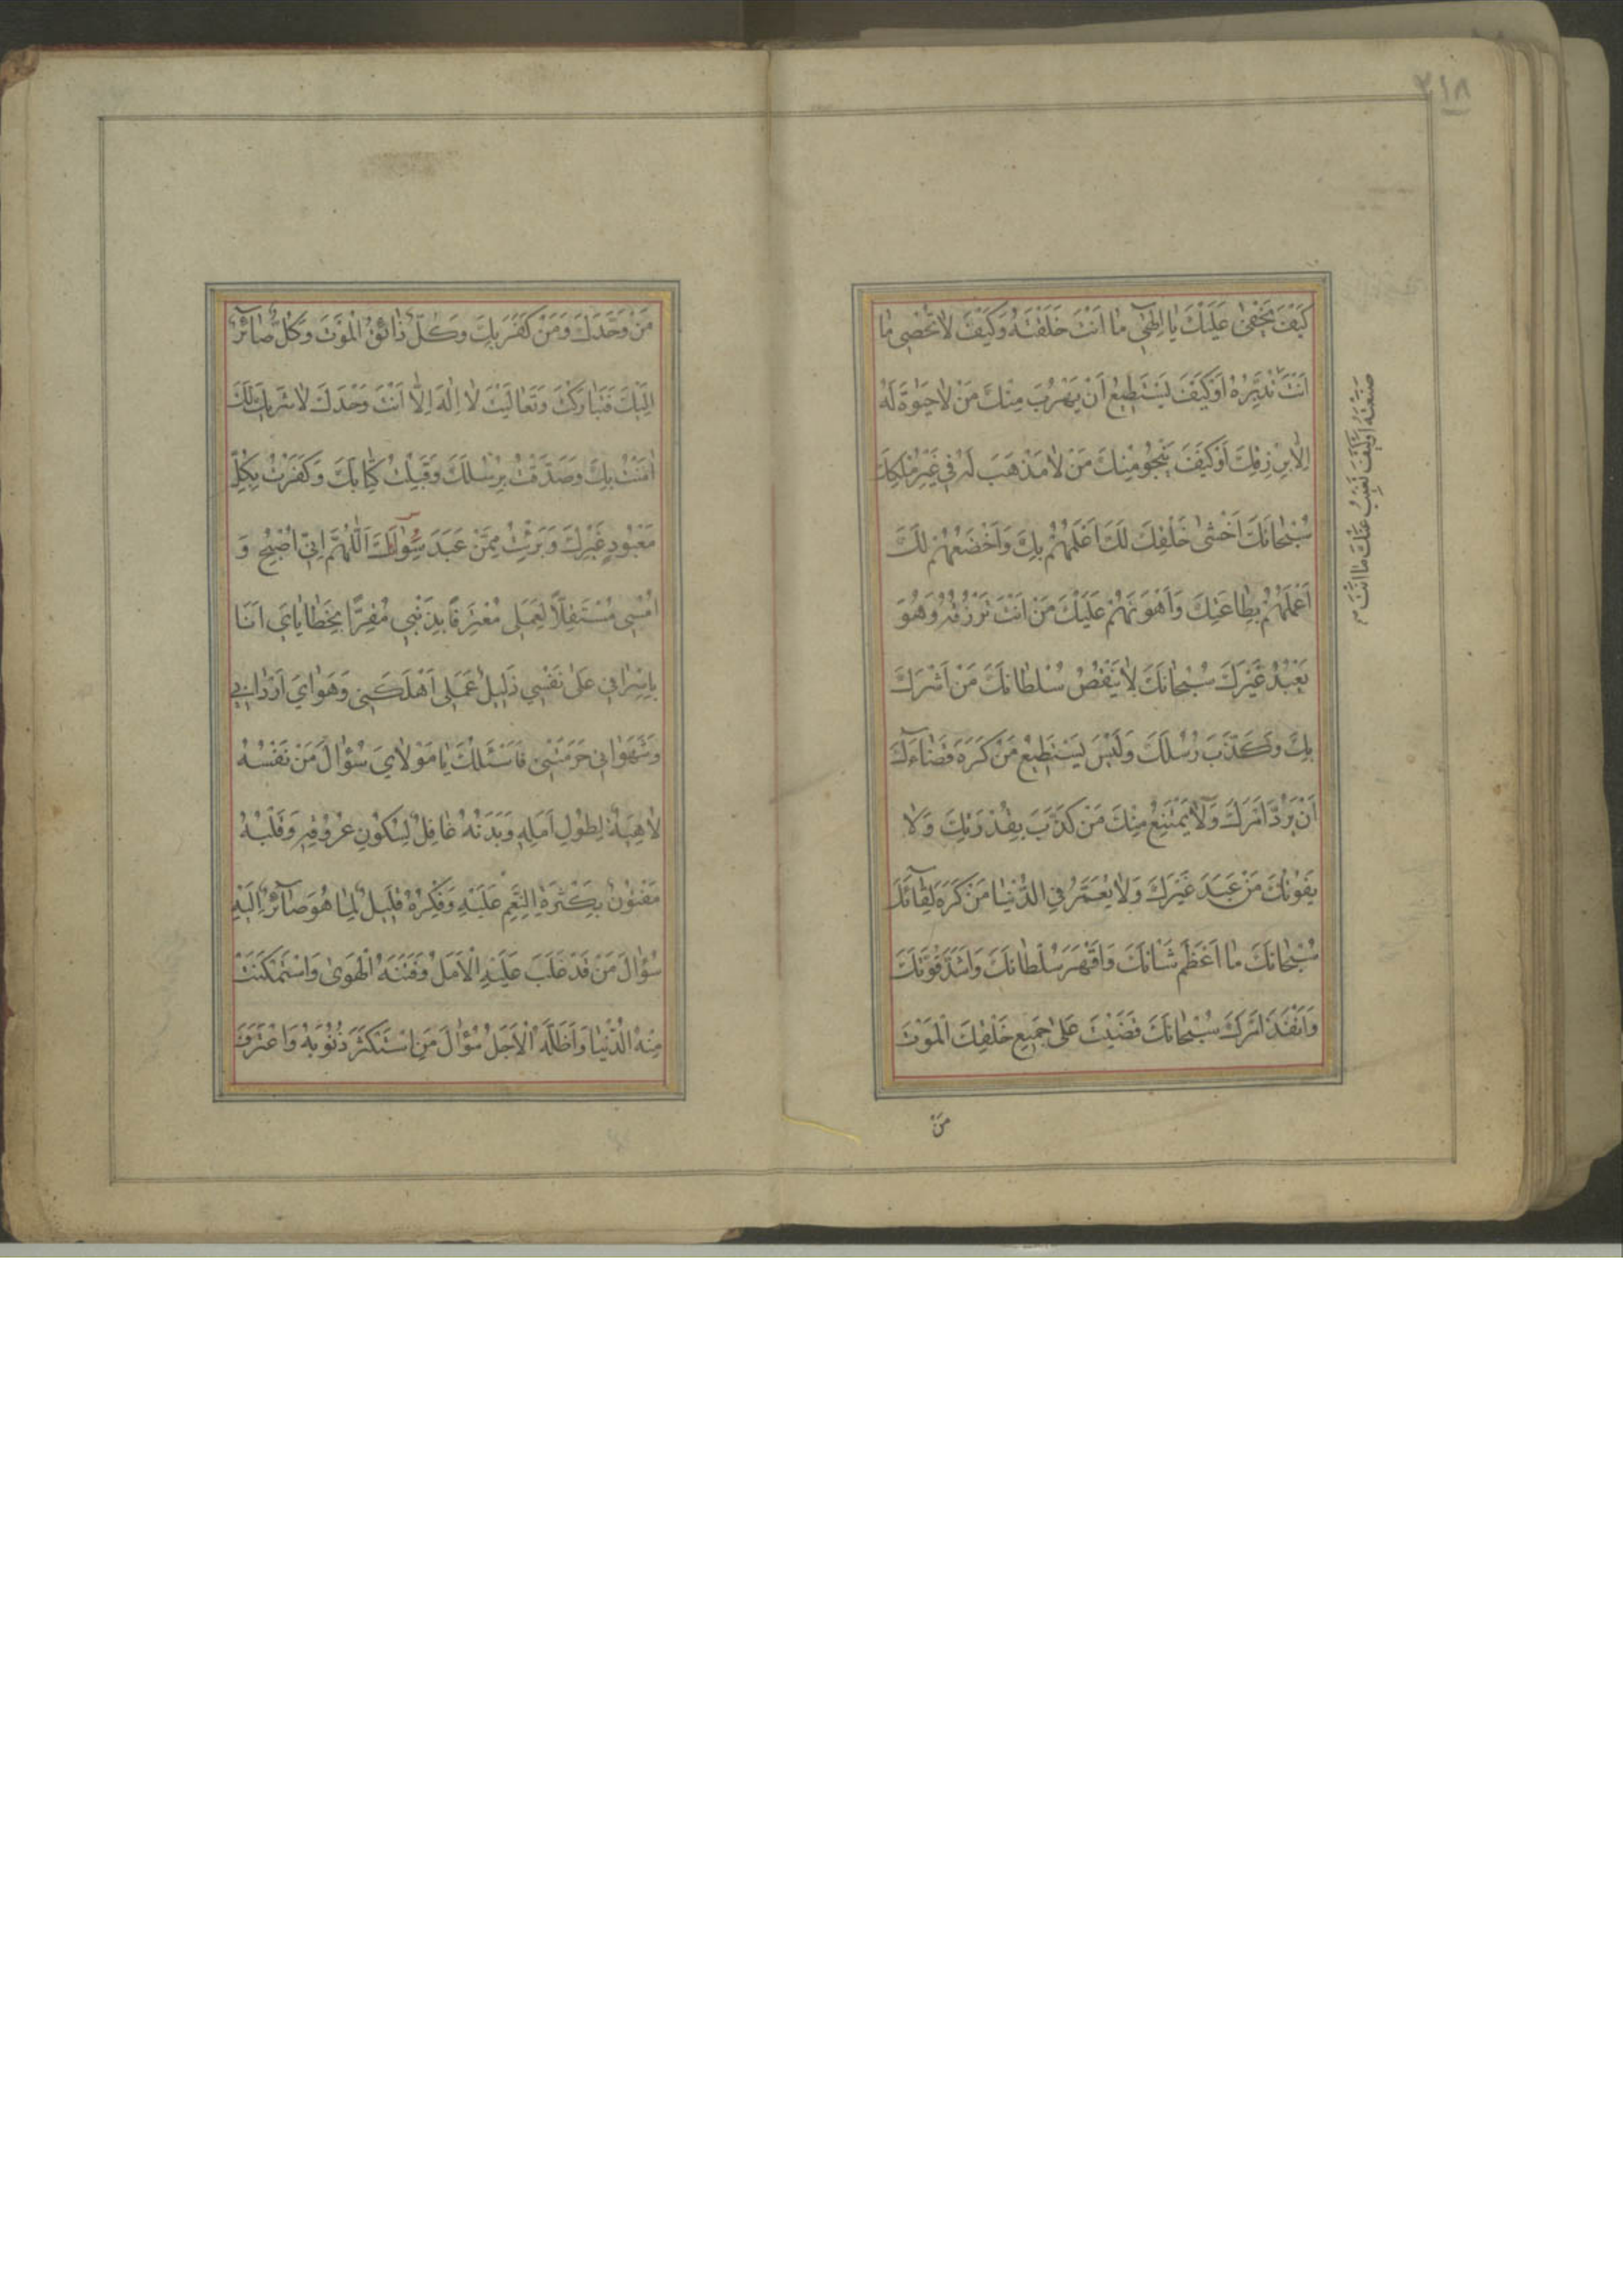 ٢١٨
كَيْفَ يَخْفىٰ عَلَيْكَ يٰا اِلٰهِي مٰا اَنْتَ خَلَقْتَهُ وَكَيْفَ لاٰ تُحْصِي مٰا
صَنَعْتَهُ اَوْ كَيْفَ يَغِيبُ عَنْكَ مٰا اَنْتَ
اَنْتَ تُدَبِّرُهُ اَوْ كَيْفَ يَسْتَطِيعُ اَنْ يَهْرُبَ مِنْكَ مَنْ لاٰ حَيٰوةَ لَهُ
اِلاّٰ بِرِزْقِكَ اَوْ كَيْفَ يَنْجُو مِنْكَ مَنْ لاٰ مَذْهَبَ لَهُ فِي غَيْرِ مُلْكِكَ
سُبْحٰانَكَ اَخْشىٰ خَلْقِكَ لَكَ اَعْلَمُهُمْ بِكَ وَاَخْضَعُهُمْ لَكَ
اَعْمَلُهُمْ بِطٰاعَتِكَ وَاَهْوَنُهُمْ عَلَيْكَ مَنْ اَنْتَ تَرْزُقُهُ وَهُوَ
يَعْبُدُ غَيْرَكَ سُبْحٰانَكَ لاٰ يَنْقُصُ سُلْطٰانَكَ مَنْ اَشْرَكَ
بِكَ وَكَذَّبَ رُسُلَكَ وَلَيْسَ يَسْتَطِيعُ مَنْ كَرِهَ قَضٰاءَكَ
اَنْ يَرُدَّ اَمْرَكَ وَلاٰ يَمْتَنِعُ مِنْكَ مَنْ كَذَّبَ بِقُدْرَتِكَ وَلاٰ
يَفُوتُكَ مَنْ عَبَدَ غَيْرَكَ وَلاٰ يُعَمَّرُ فِي الدُّنْيٰا مَنْ كَرِهَ لِقٰائَكَ
سُبْحٰانَكَ مٰا اَعْظَمَ شَانَكَ وَاَقْهَرَ سُلْطٰانَكَ وَاَشَدَّ قُوَّتَكَ
وَاَنْفَذَ اَمْرَكَ سُبْحٰانَكَ قَضَيْتَ عَلىٰ جَمِيعِ خَلْقِكَ الْمَوْتَ
مَنْ
مَنْ وَحَّدَكَ وَمَنْ كَفَرَ بِكَ وَكُلٌّ ذٰائِقُ الْمَوْتِ وَكُلٌّ صٰآئِرٌ
اِلَيْكَ فَتَبٰارَكْتَ وَتَعٰالَيْتَ لاٰ اِلٰهَ اِلاّٰ اَنْتَ وَحْدَكَ لاٰ شَرِيكَ لَكَ
اٰمَنْتُ بِكَ وَصَدَّقْتُ بِرُسُلِكَ وَقَبِلْتُ كِتٰابَكَ وَكَفَرْتُ بِكُلِّ
مَعْبُودٍ غَيْرِكَ وَبَرِئْتُ مِمَّنْ عَبَدَ سِوٰاكَ اَللّٰهُمَّ اِنِّي اُصْبِحُ وَ
اُمْسِي مُسْتَقِلاًّ لِعَمَلِي مُعْتَرِفًا بِذَنْبِي مُقِرًّا بِخَطٰايٰايَ اَنَا
بِاِسْرٰافِي عَلىٰ نَفْسِي ذَلِيلٌ عَمَلِي اَهْلَكَنِي وَهَوٰايَ اَرْدٰانِي
وَشَهَوٰاتِي حَرَمَتْنِي فَاَسْئَلُكَ يٰا مَوْلاٰيَ سُؤٰالَ مَنْ نَفْسُهُ
لاٰهِيَةٌ لِطُولِ اَمَلِهِ وَبَدَنُهُ غٰافِلٌ لِسُكُونِ عُرُوقِهِ وَقَلْبُهُ
مَفْتُونٌ بِكَثْرَةِ النِّعَمِ عَلَيْهِ وَفِكْرُهُ قَلِيلٌ لِمٰا هُوَ صٰآئِرٌ اِلَيْهِ
سُؤٰالَ مَنْ قَدْ غَلَبَ عَلَيْهِ الْاَمَلُ وَفَتَنَهُ الْهَوىٰ وَاسْتَمْكَنَتْ
مِنْهُ الدُّنْيٰا وَاَظَلَّهُ الْاَجَلُ سُؤٰالَ مَنِ اسْتَكْثَرَ ذُنُوبَهُ وَاعْتَرَفَ